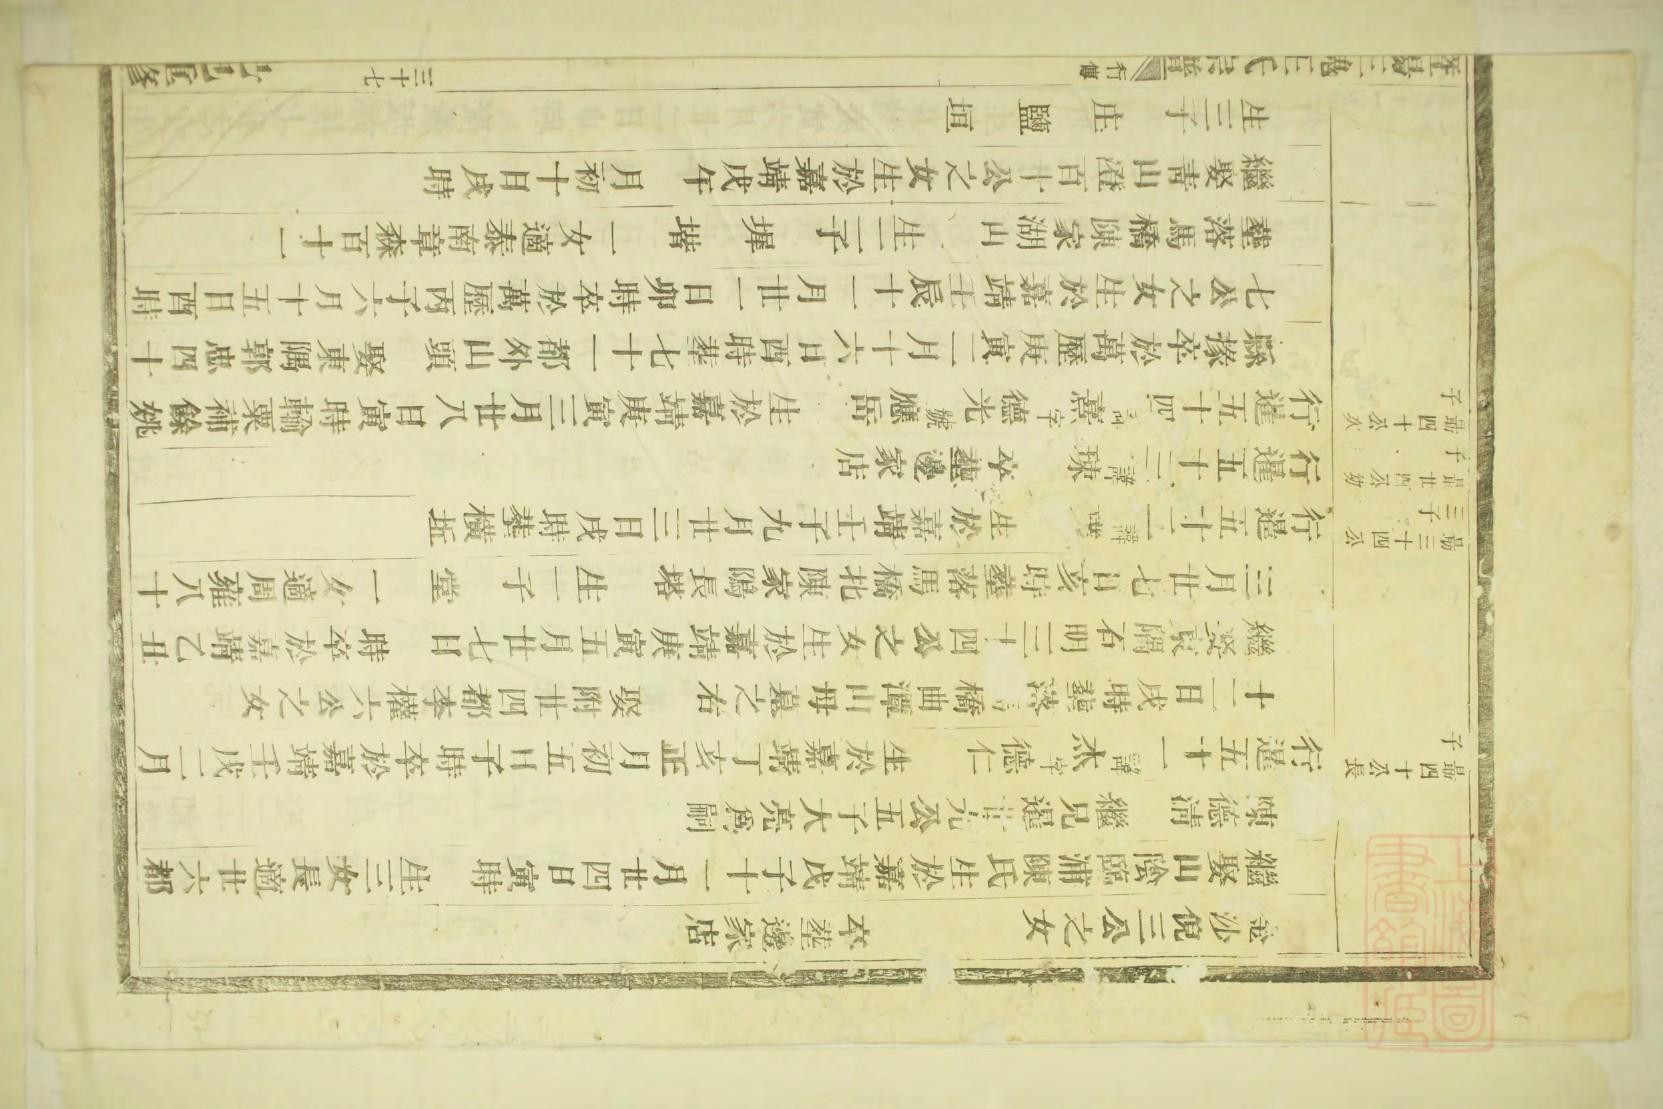 金沙倪三公之女 卒葬邊家店
繼娶山陰臨浦陳氏生於嘉靖戊子十一月廿四日寅時 生三女長適廿六都
陳德清 繼兄暹廿九公五子大亮爲嗣
四十公長子
行暹五十一諱杰字德仁 生於嘉靖丁亥正月初五日子時卒於嘉靖壬戌二月
十二日戌時葬落橋曲潭山母墓之右 娶附廿四都李權六公之女
繼娶東隅石明三十四公之女生於嘉靖庚寅五月廿七日 時卒於嘉靖乙丑
三月廿七日亥時葬落馬橋北陳家隖長塔 生一子 堂 一女適周雍八十
三十四公三子
行暹五十二諱 生於嘉靖壬子九月廿三日戌時葬橫坵
廿四公幼子
行暹五十三諱球 卒葬邊家店
四十公次子
行暹五十四諱熹字德光號應岳 生於嘉靖庚寅三月廿八日寅時輸粟補餘姚
縣掾卒於萬曆庚寅二月十六日酉時葬七十一都外山頭 娶東隅郭忠四十
七公之女生於嘉靖壬辰十一月廿一日卯時卒於萬曆丙子六月十五日酉時
葬落馬橋陳家湖山 生二子 墀 堦 一女適泰南章森百十一
繼娶青山澄百十公之女生於嘉靖戊年 月初十日戌時
生三子 庄 鹽 垣
三魁王氏宗譜 行傳 三十七 重修